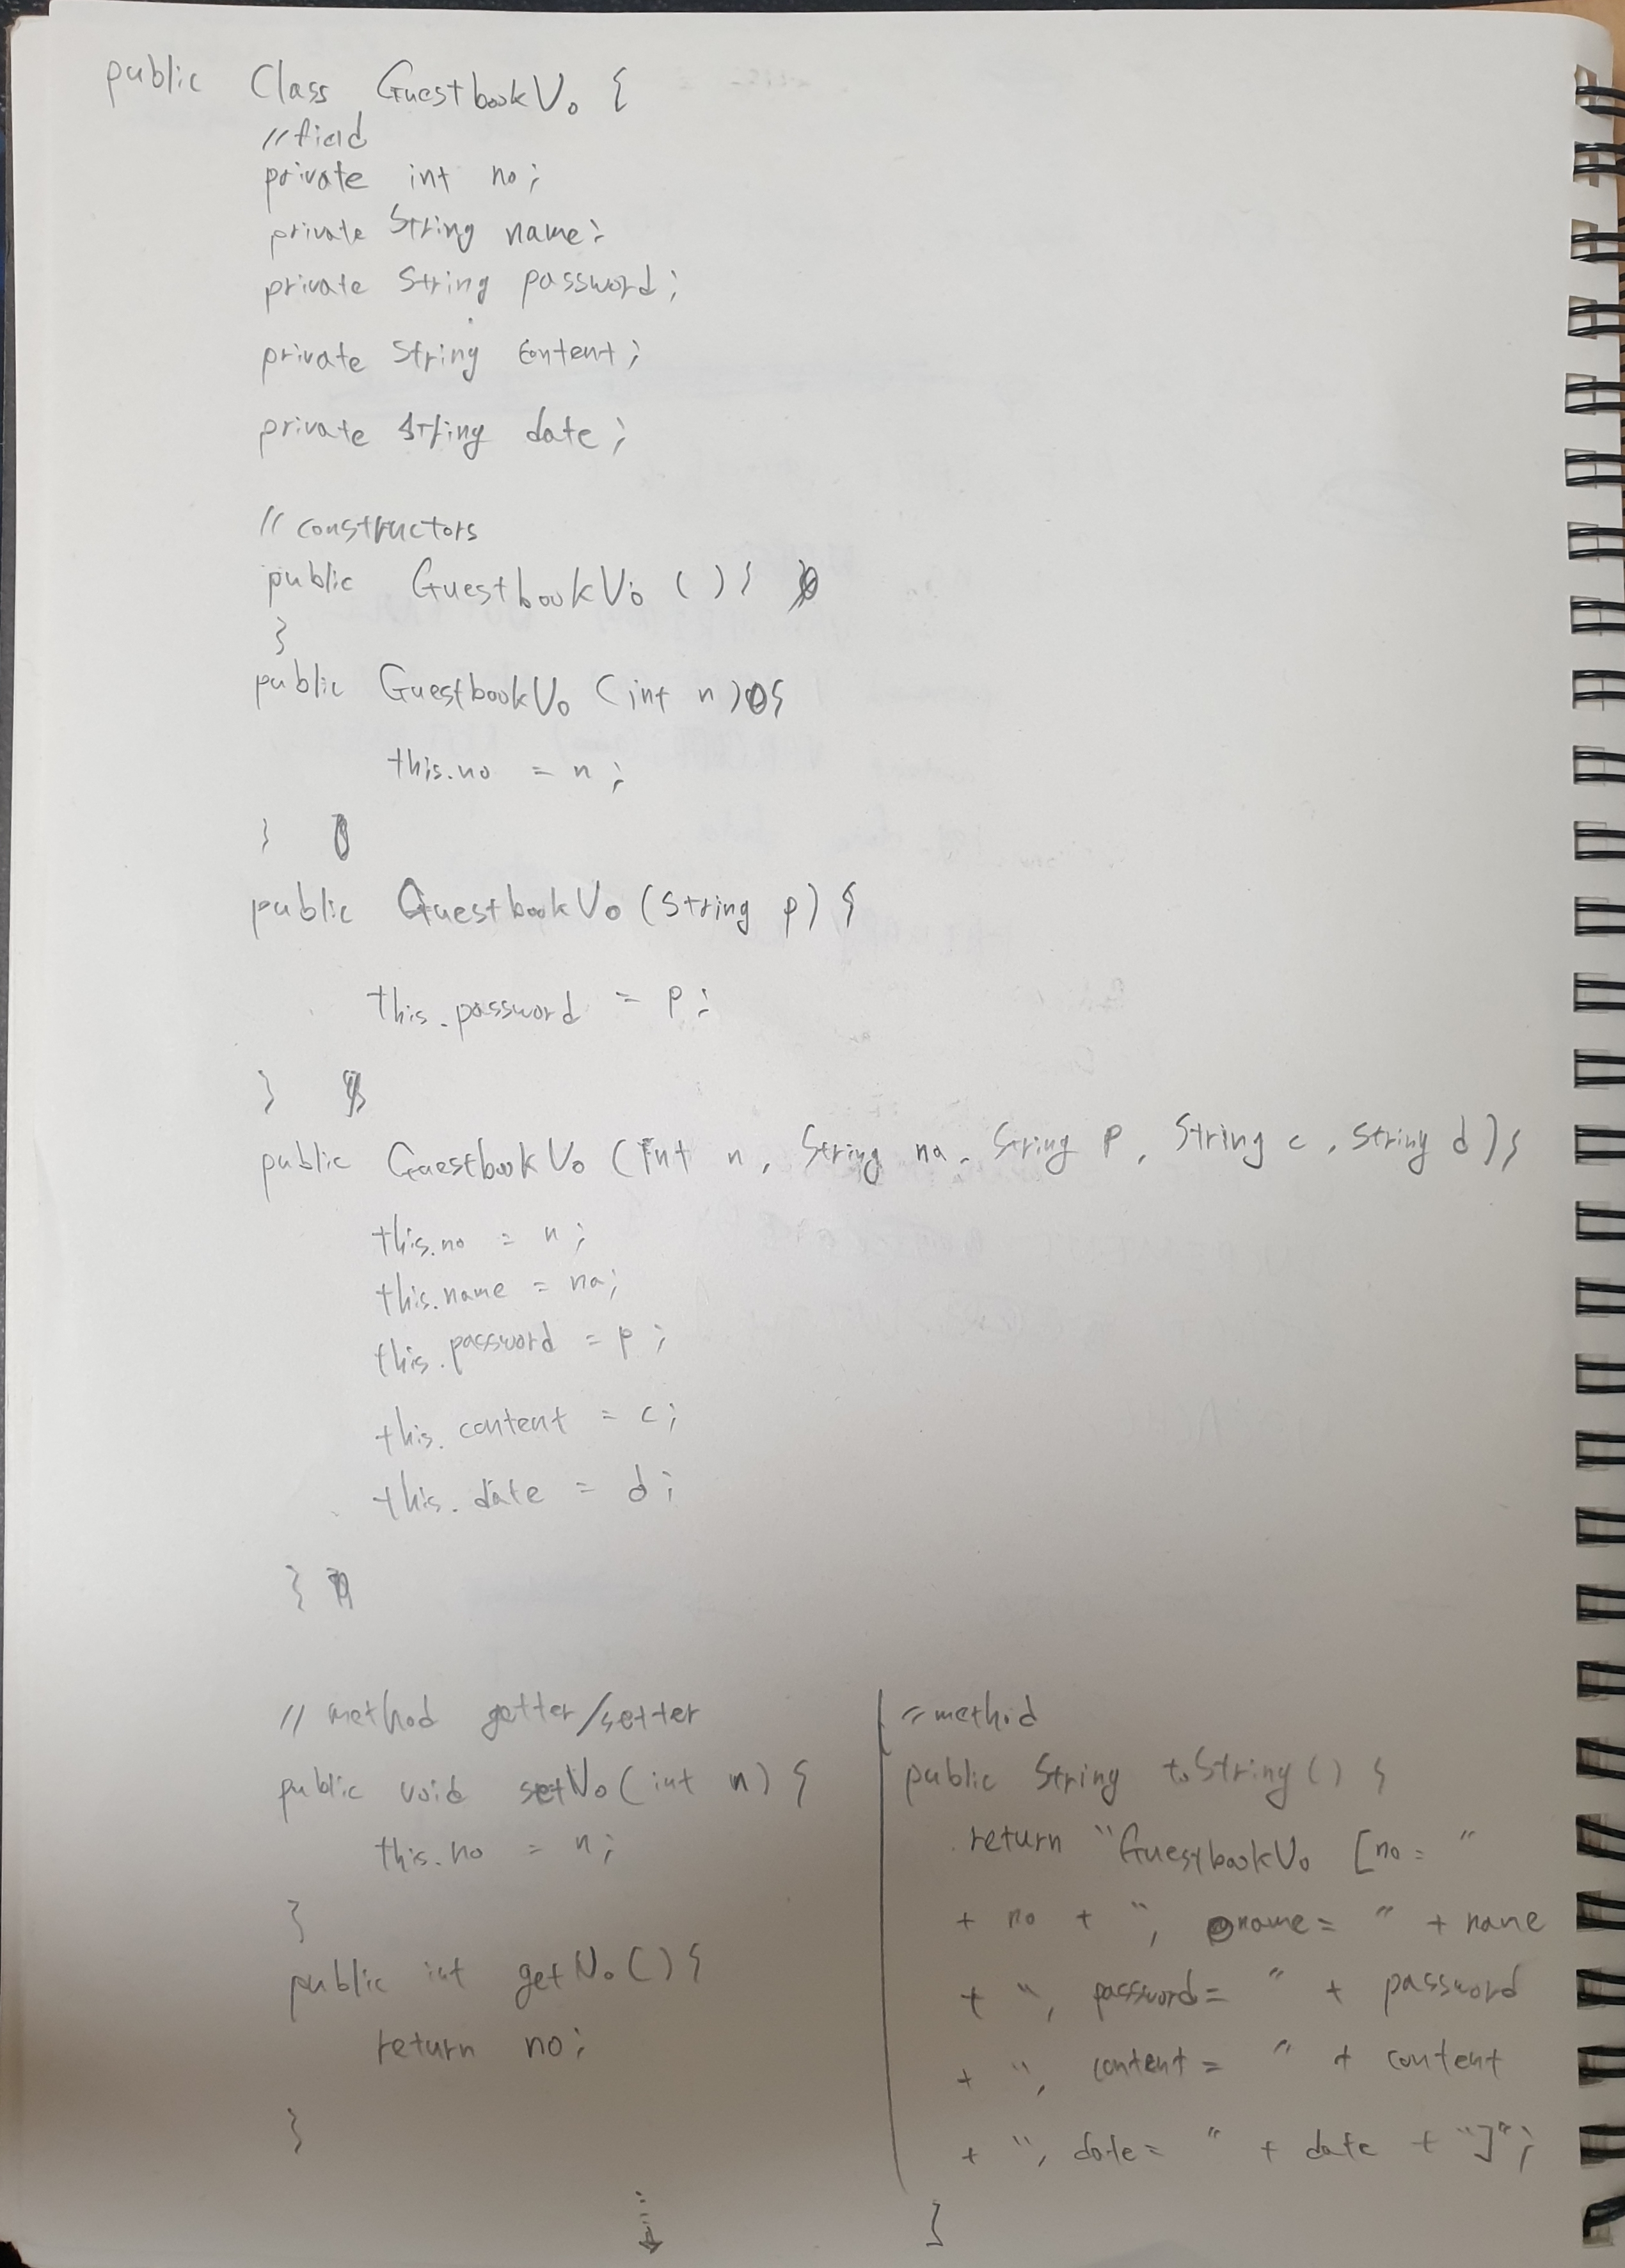 public Class GuestbookVo {
//field
private int no;
private String name;
private String password;
private String content;
private String date;
// constructors
public GuestbookVo () {
}
public GuestbookVo (int n) {
this.no = n;
}
public GuestbookVo (String p) {
this.password = p;
}
public GuestbookVo (int n, String na, String p, String c, String d) {
this.no = n;
this.name = na;
this.password = p;
this.content = c;
this.date = d;
}
// method getter/setter
public void setNo (int n) {
this.no = n;
}
public int getNo () {
return no;
}
//method
public String toString () {
return "GuestbookVo [no = "
+ no + ", name = " + name
+ ", password = " + password
+ ", content = " + content
+ ", date = " + date + "]";
}